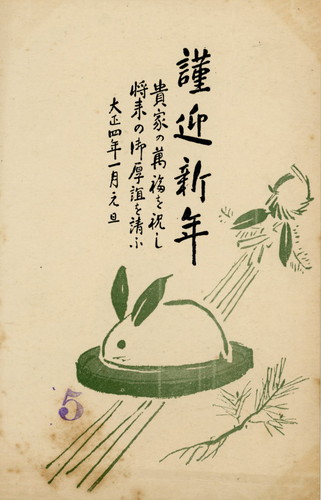 謹迎新年
貴家の萬福を祝し
将来の御厚誼を請ふ
大正四年一月元旦
5